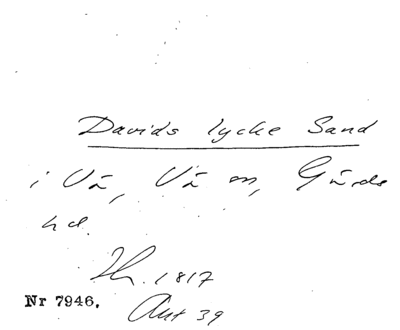 Davids lycke Sand
i Vä, Vä sn, Gärds
hd.
Th. 1817
Nr 7946.
Aut 39